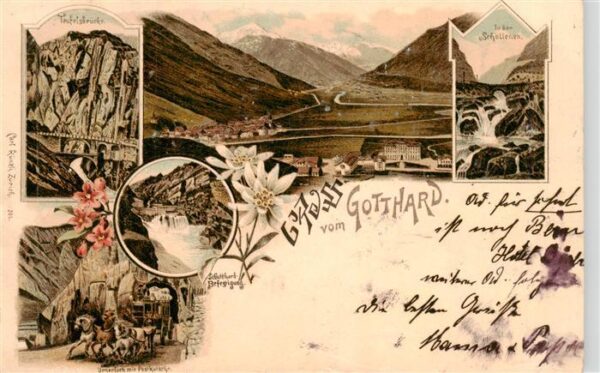 Teufelsbrücke.
In den
Schöllenen.
Gruss
vom GOTTHARD.
Gotthard
Befestigung
Urnerloch mit Postkutsche.
Carl Künzli, Zürich.
Ord. für
ist noch Bern
Hotel
weitere Ord. folgen
Die besten Grüsse
Mama & Papa